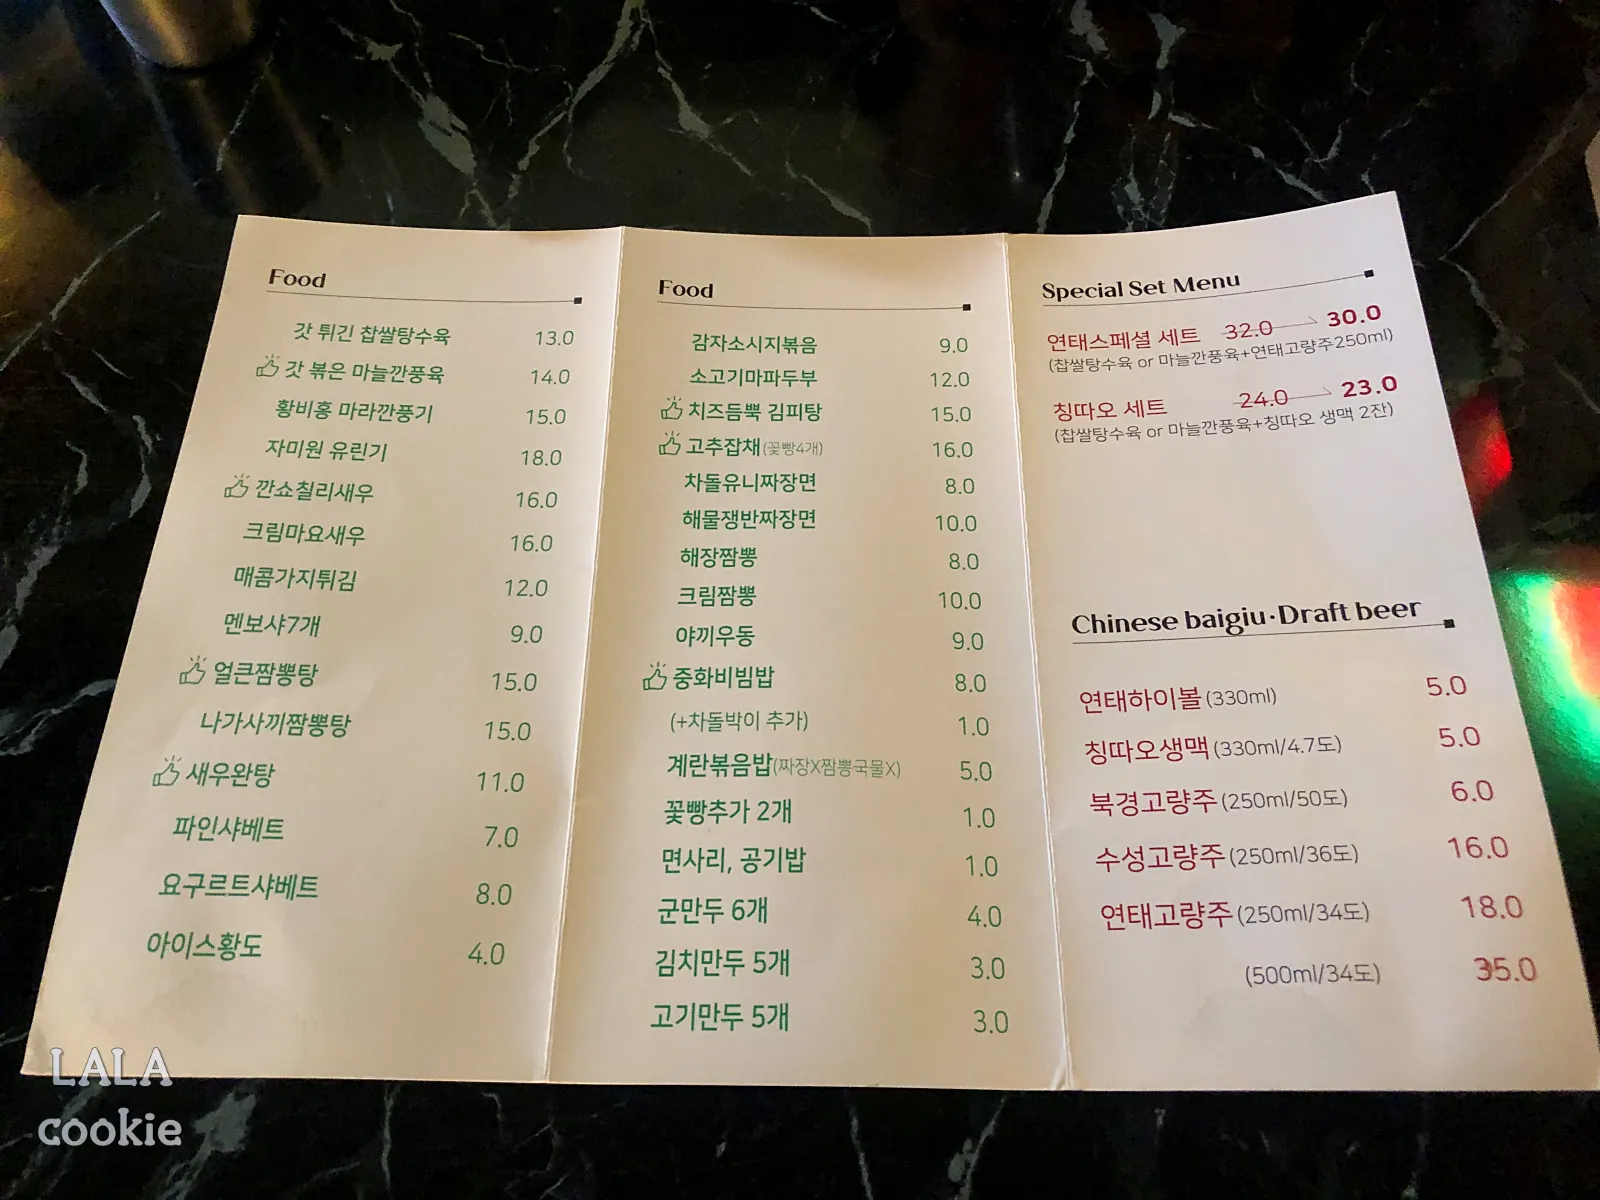 Food
갓 튀긴 찹쌀탕수육 13.0
갓 볶은 마늘깐풍육 14.0
황비홍 마라깐풍기 15.0
자미원 유린기 18.0
깐쇼칠리새우 16.0
크림마요새우 16.0
매콤가지튀김 12.0
멘보샤7개 9.0
얼큰짬뽕탕 15.0
나가사끼짬뽕탕 15.0
새우완탕 11.0
파인샤베트 7.0
요구르트샤베트 8.0
아이스황도 4.0
Food
감자소시지볶음 9.0
소고기마파두부 12.0
치즈듬뿍 김피탕 15.0
고추잡채(꽃빵4개) 16.0
차돌유니짜장면 8.0
해물쟁반짜장면 10.0
해장짬뽕 8.0
크림짬뽕 10.0
야끼우동 9.0
중화비빔밥 8.0
(+차돌박이 추가) 1.0
계란볶음밥(짜장X짬뽕국물X) 5.0
꽃빵추가 2개 1.0
면사리, 공기밥 1.0
군만두 6개 4.0
김치만두 5개 3.0
고기만두 5개 3.0
Special Set Menu
연태스페셜 세트 32.0 30.0
(찹쌀탕수육 or 마늘깐풍육+연태고량주250ml)
칭따오 세트 24.0 23.0
(찹쌀탕수육 or 마늘깐풍육+칭따오 생맥 2잔)
Chinese baigiu·Draft beer
연태하이볼(330ml) 5.0
칭따오생맥(330ml/4.7도) 5.0
북경고량주(250ml/50도) 6.0
수성고량주(250ml/36도) 16.0
연태고량주(250ml/34도) 18.0
(500ml/34도) 35.0
LALA
cookie